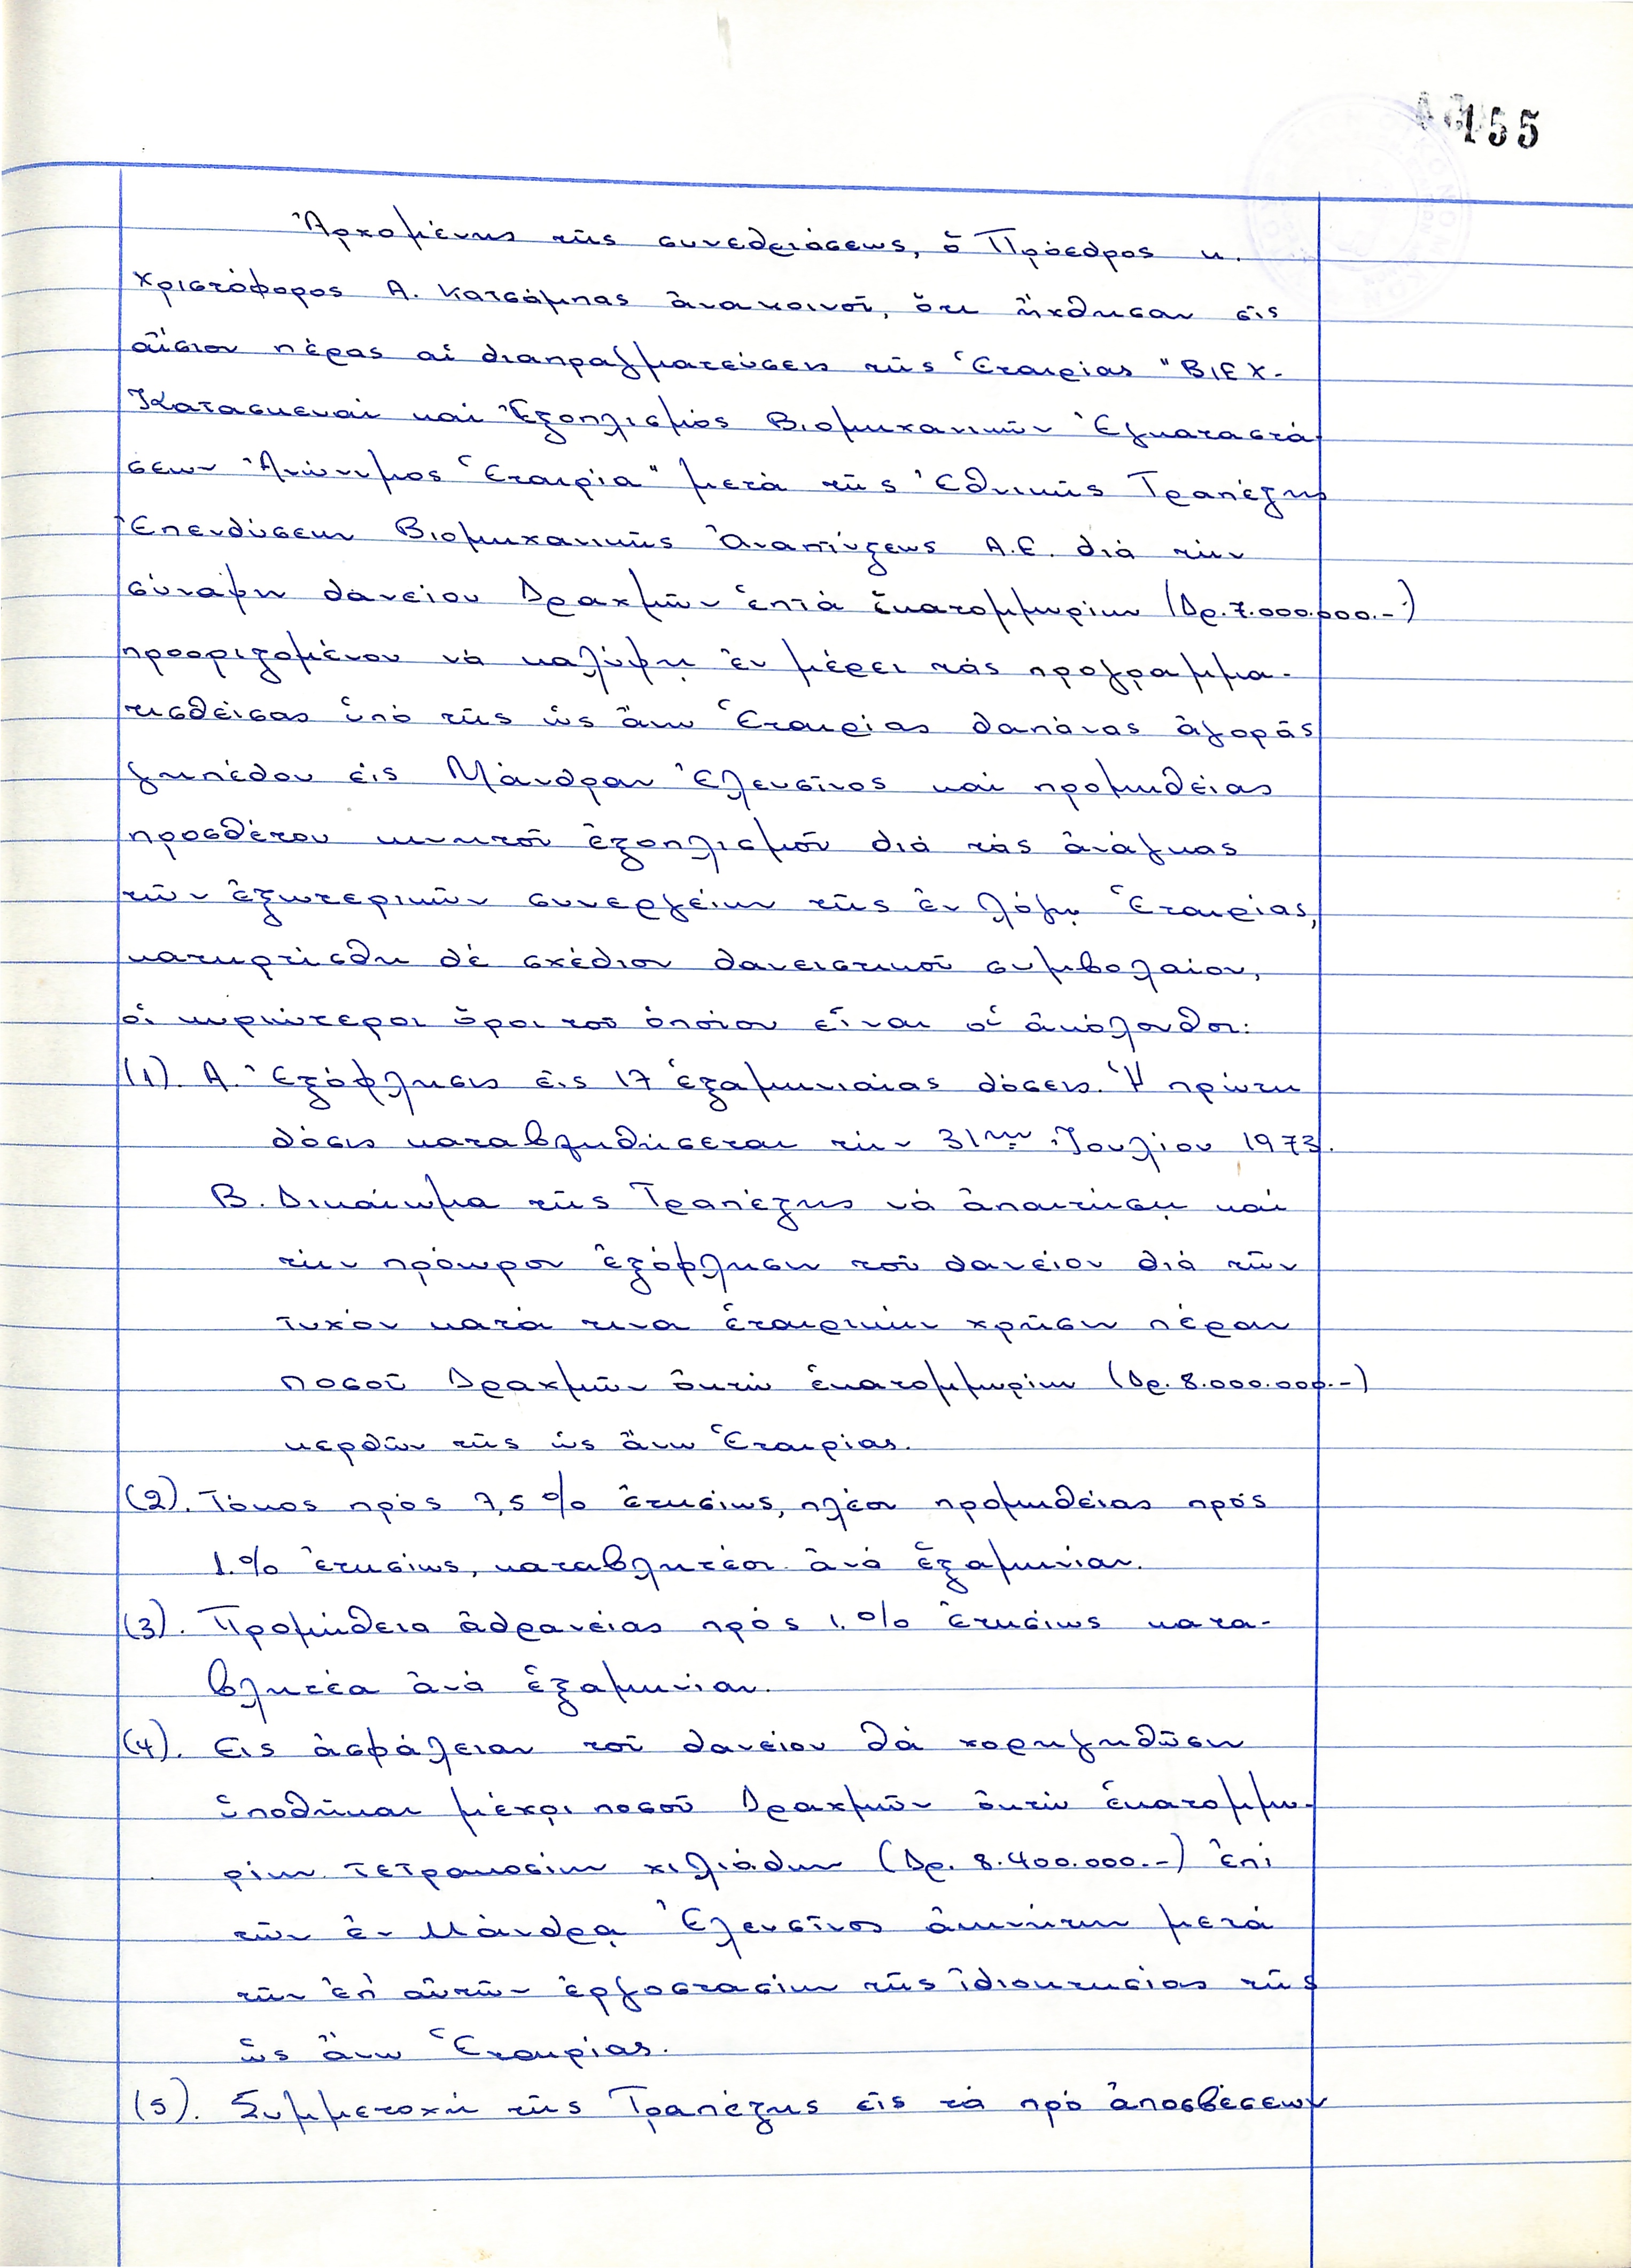 155
Ἀρχομένης τῆς συνεδριάσεως, ὁ Πρόεδρος κ.
Χριστόφορος Α. Κατσάμπας ἀνακοινοῖ, ὅτι ἤχθησαν εἰς
αἴσιον πέρας αἱ διαπραγματεύσεις τῆς Ἑταιρίας "ΒΙΕΧ-
Κατασκευαί καί Ἐξοπλισμός Βιομηχανικῶν Ἐγκαταστά
σεων Ἀνώνυμος Ἑταιρία" μετά τῆς Ἐθνικῆς Τραπέζης
Ἐπενδύσεων Βιομηχανικῆς Ἀναπτύξεως Α.Ε. διά τήν
σύναψιν δανείου Δραχμῶν ἑπτά ἑκατομμυρίων (Δρ. 7.000.000.-)
προοριζομένου νά καλύψῃ ἐν μέρει τάς προγραμμα-
τισθείσας ὑπό τῆς ὡς ἄνω Ἑταιρίας δαπάνας ἀγορᾶς
γηπέδου εἰς Μάνδραν Ἐλευσῖνος καί προμηθείας
προσθέτου κινητοῦ ἐξοπλισμοῦ διά τάς ἀνάγκας
τῶν ἐξωτερικῶν συνεργείων τῆς ἐν λόγῳ Ἑταιρίας,
κατηρτίσθη δέ σχέδιον δανειστικοῦ συμβολαίου,
οἱ κυριώτεροι ὅροι τοῦ ὁποίου εἶναι οἱ ἀκόλουθοι:
(1). Α. Ἐξόφλησις εἰς 17 ἑξαμηνιαίας δόσεις. Ἡ πρώτη
δόσις καταβληθήσεται τήν 31ην Ἰουλίου 1973.
Β. Δικαίωμα τῆς Τραπέζης νά ἀπαιτήσῃ καί
τήν πρόωρον ἐξόφλησιν τοῦ δανείου διά τῶν
τυχόν κατά τινα ἑταιρικήν χρῆσιν πέραν
ποσοῦ Δραχμῶν ὀκτώ ἑκατομμυρίων (Δρ. 8.000.000.-)
κερδῶν τῆς ὡς ἄνω Ἑταιρίας.
(2). Τόκος πρός 7,5 % ἐτησίως, πλέον προμηθείας πρός
1.% ἐτησίως, καταβλητέον ἀνά ἑξαμηνίαν.
(3). Προμήθεια ἀδρανείας πρός 1.% ἐτησίως κατα-
βλητέα ἀνά ἑξαμηνίαν.
(4). Εἰς ἀσφάλειαν τοῦ δανείου θά χορηγηθῶσιν
ὑποθῆκαι μέχρι ποσοῦ Δραχμῶν ὀκτώ ἑκατομμυ-
ρίων τετρακοσίων χιλιάδων (Δρ. 8.400.000.-) ἐπί
τῶν ἐν Μάνδρᾳ Ἐλευσῖνος ἀκινήτων μετά
τῶν ἐπ' αὐτῶν ἐργοστασίων τῆς ἰδιοκτησίας τῆς
ὡς ἄνω Ἑταιρίας.
(5). Συμμετοχή τῆς Τραπέζης εἰς τά πρό ἀποσβέσεων